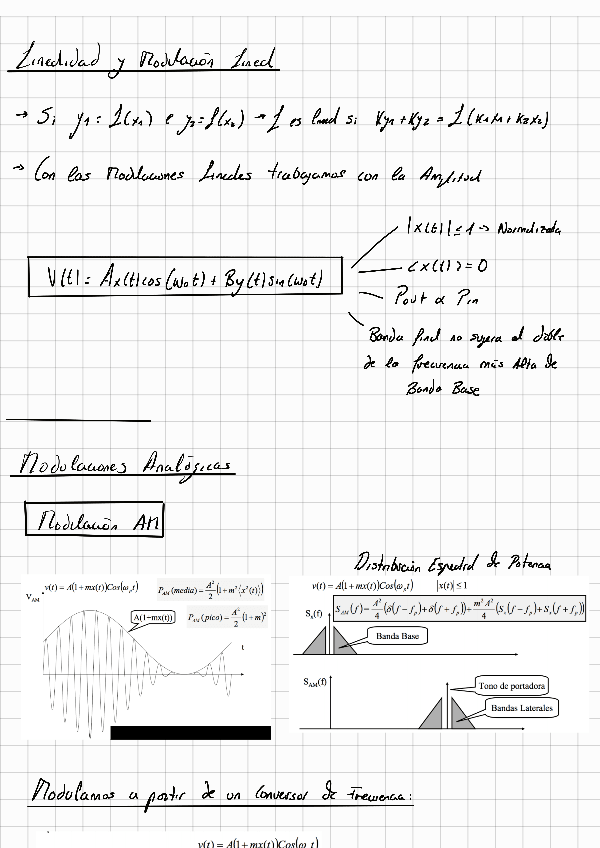 Linealidad y Modulación Lineal
→ Si y₁ = f(x₁) e y₂ = f(x₂) → f es lineal si Ky₁ + Ky₂ = f(K₁x₁ + K₂x₂)
→ Con las Modulaciones Lineales trabajamos con la Amplitud
V(t) = Ax(t)cos(ω₀t) + By(t)sin(ω₀t)
|x(t)| ≤ 1 → Normalizada
<x(t)> = 0
Pout α Pin
Banda final no supera al doble
de la frecuencia más Alta de
Banda Base
Modulaciones Analógicas
Modulación AM
Distribución Espectral de Potencia
V_AM
v(t) = A(1+mx(t))Cos(ω_p t)
P_AM(media) = A²/2 (1+m²⟨x²(t)⟩)
P_AM(pico) = A²/2 (1+m)²
A(1+mx(t))
t
v(t) = A(1+mx(t))Cos(ω_p t) |x(t)| ≤ 1
S_x(f)
S_AM(f) = A²/4 (δ(f−f_p)+δ(f+f_p)) + m²A²/4 (S_x(f−f_p)+S_x(f+f_p))
Banda Base
S_AM(f)
Tono de portadora
Bandas Laterales
Modulamos a partir de un Conversor de Frecuencia:
v(t) = A(1+mx(t))Cos(ω_p t)